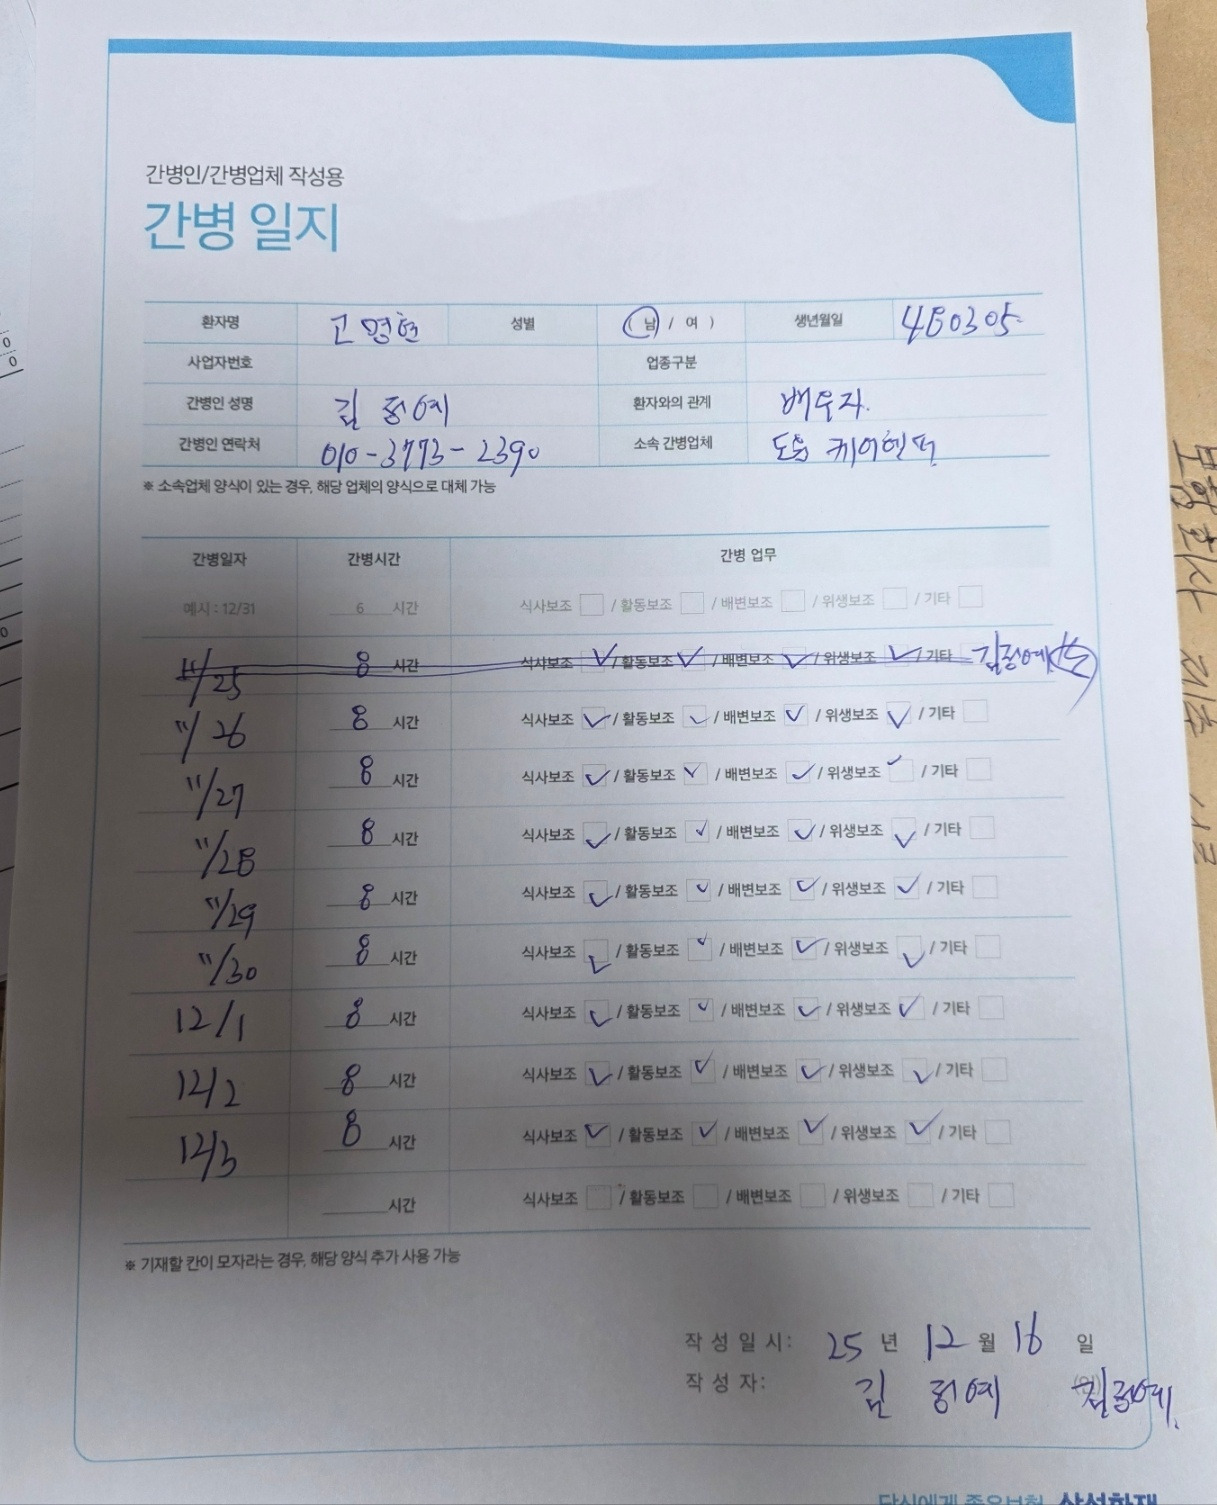 간병인/간병업체 작성용
간병 일지
환자명 고영현 성별 ( 남 / 여 ) 생년월일 480305
사업자번호 업종구분
간병인 성명 김정예 환자와의 관계 배우자.
간병인 연락처 010-3773-2390 소속 간병업체 도움 케어헬퍼
※ 소속업체 양식이 있는 경우, 해당 업체의 양식으로 대체 가능
간병일자 간병시간 간병 업무
예시 : 12/31 6 시간 식사보조 / 활동보조 / 배변보조 / 위생보조 / 기타
11/25 8 시간 식사보조 / 활동보조 / 배변보조 / 위생보조 / 기타 김정예
11/26 8 시간 식사보조 / 활동보조 / 배변보조 / 위생보조 / 기타
11/27 8 시간 식사보조 / 활동보조 / 배변보조 / 위생보조 / 기타
11/28 8 시간 식사보조 / 활동보조 / 배변보조 / 위생보조 / 기타
11/29 8 시간 식사보조 / 활동보조 / 배변보조 / 위생보조 / 기타
11/30 8 시간 식사보조 / 활동보조 / 배변보조 / 위생보조 / 기타
12/1 8 시간 식사보조 / 활동보조 / 배변보조 / 위생보조 / 기타
12/2 8 시간 식사보조 / 활동보조 / 배변보조 / 위생보조 / 기타
12/3 8 시간 식사보조 / 활동보조 / 배변보조 / 위생보조 / 기타
시간 식사보조 / 활동보조 / 배변보조 / 위생보조 / 기타
※ 기재할 칸이 모자라는 경우, 해당 양식 추가 사용 가능
작성일시: 25 년 12 월 16 일
작성자: 김정예 (인) 김정예
당신에게 좋은보험 삼성화재